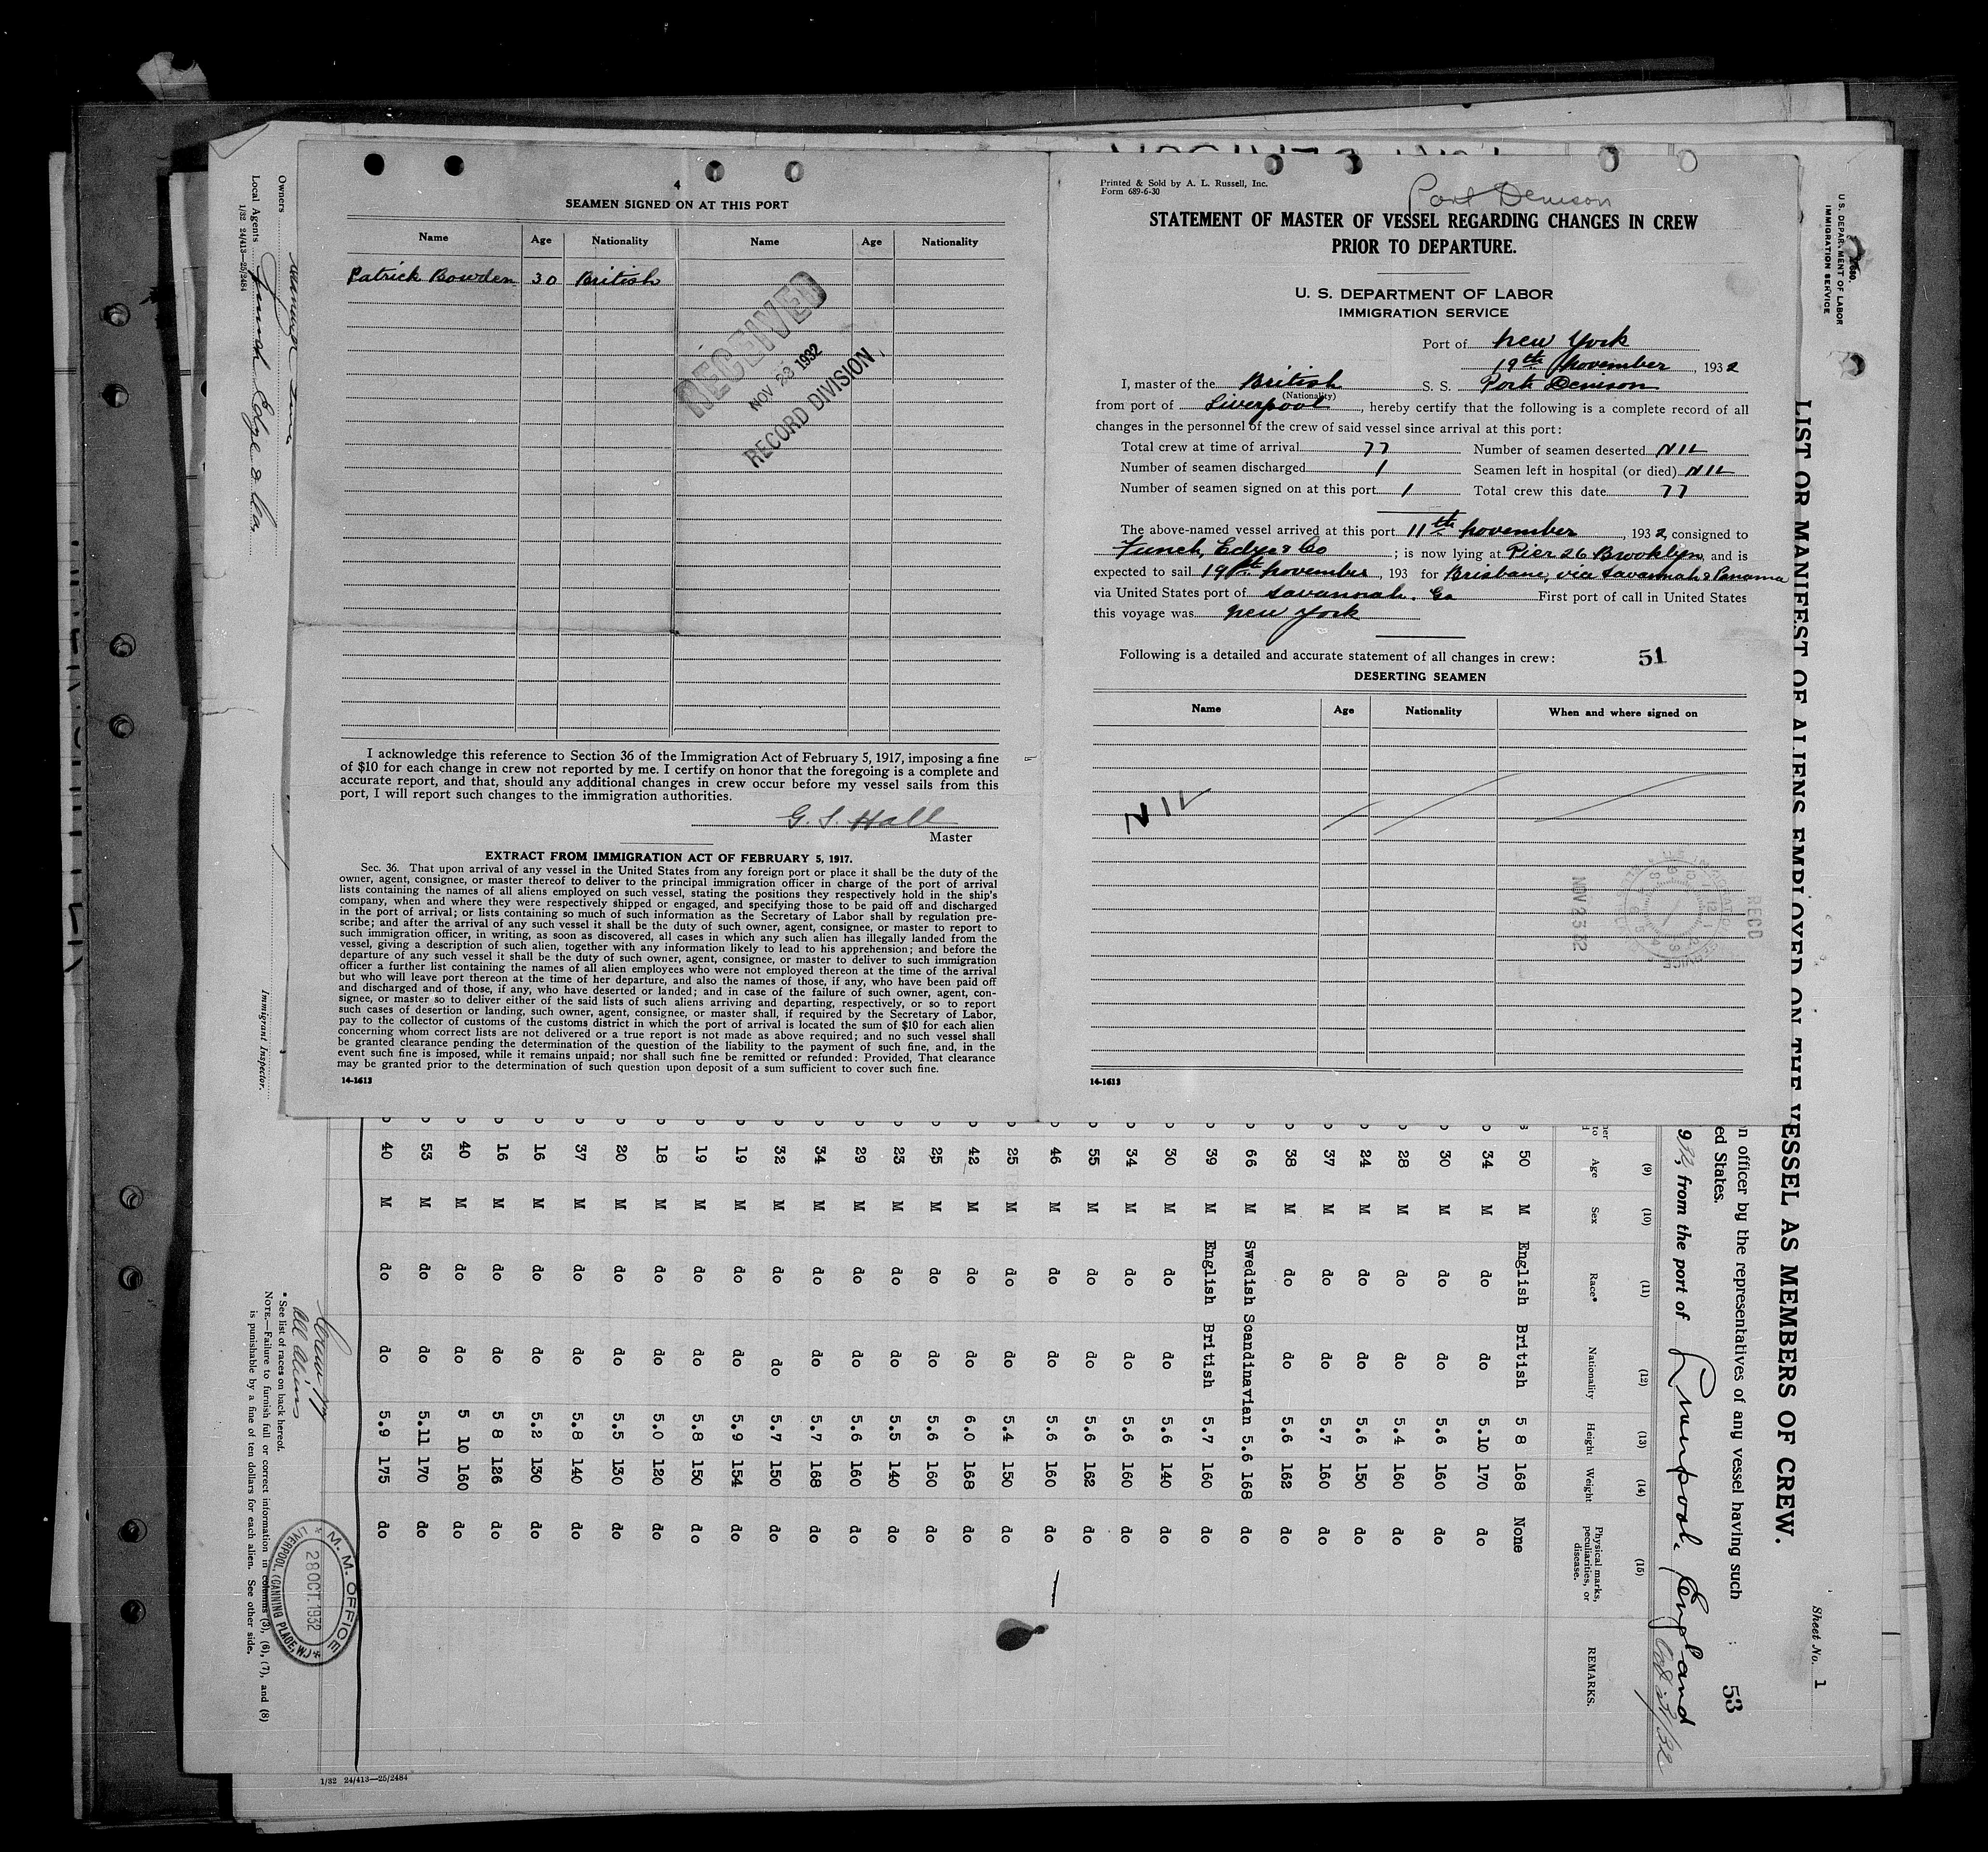 4
SEAMEN SIGNED ON AT THIS PORT
Name Age Nationality Name Age Nationality
Patrick Bowden 30 British
RECEIVED
NOV 23 1932
RECORD DIVISION
I acknowledge this reference to Section 36 of the Immigration Act of February 5, 1917, imposing a fine
of $10 for each change in crew not reported by me. I certify on honor that the foregoing is a complete and
accurate report, and that, should any additional changes in crew occur before my vessel sails from this
port, I will report such changes to the immigration authorities.
G. S. Hall
Master
EXTRACT FROM IMMIGRATION ACT OF FEBRUARY 5, 1917.
Sec. 36. That upon arrival of any vessel in the United States from any foreign port or place it shall be the duty of the
owner, agent, consignee, or master thereof to deliver to the principal immigration officer in charge of the port of arrival
lists containing the names of all aliens employed on such vessel, stating the positions they respectively hold in the ship's
company, when and where they were respectively shipped or engaged, and specifying those to be paid off and discharged
in the port of arrival; or lists containing so much of such information as the Secretary of Labor shall by regulation pre-
scribe; and after the arrival of any such vessel it shall be the duty of such owner, agent, consignee, or master to report to
such immigration officer, in writing, as soon as discovered, all cases in which any such alien has illegally landed from the
vessel, giving a description of such alien, together with any information likely to lead to his apprehension; and before the
departure of any such vessel it shall be the duty of such owner, agent, consignee, or master to deliver to such immigration
officer a further list containing the names of all alien employees who were not employed thereon at the time of the arrival
but who will leave port thereon at the time of her departure, and also the names of those, if any, who have been paid off
and discharged and of those, if any, who have deserted or landed; and in case of the failure of such owner, agent, con-
signee, or master so to deliver either of the said lists of such aliens arriving and departing, respectively, or so to report
such cases of desertion or landing, such owner, agent, consignee, or master shall, if required by the Secretary of Labor,
pay to the collector of customs of the customs district in which the port of arrival is located the sum of $10 for each alien
concerning whom correct lists are not delivered or a true report is not made as above required; and no such vessel shall
be granted clearance pending the determination of the question of the liability to the payment of such fine, and, in the
event such fine is imposed, while it remains unpaid; nor shall such fine be remitted or refunded: Provided, That clearance
may be granted prior to the determination of such question upon deposit of a sum sufficient to cover such fine.
14-1613
Printed & Sold by A. L. Russell, Inc.
Form 689-6-30
Port Denison
STATEMENT OF MASTER OF VESSEL REGARDING CHANGES IN CREW
PRIOR TO DEPARTURE.
U. S. DEPARTMENT OF LABOR
IMMIGRATION SERVICE
Port of New York
19th November, 1932
I, master of the British S. S. Port Denison
(Nationality)
from port of Liverpool, hereby certify that the following is a complete record of all
changes in the personnel of the crew of said vessel since arrival at this port:
Total crew at time of arrival 77 Number of seamen deserted NIL
Number of seamen discharged 1 Seamen left in hospital (or died) NIL
Number of seamen signed on at this port 1 Total crew this date 77
The above-named vessel arrived at this port 11th November, 1932, consigned to
Funch, Edye & Co; is now lying at Pier 26 Brooklyn, and is
expected to sail 19th November, 193 for Brisbane, via Savannah & Panama
via United States port of Savannah. Ga First port of call in United States
this voyage was New York
Following is a detailed and accurate statement of all changes in crew: 51
DESERTING SEAMEN
Name Age Nationality When and where signed on
NIL
RECD
NOV 23 32
14-1613
U. S. DEPARTMENT OF LABOR
IMMIGRATION SERVICE
LIST OR MANIFEST OF ALIENS EMPLOYED ON THE VESSEL AS MEMBERS OF CREW.
Sheet No. 1
n officer by the representatives of any vessel having such 53
ed States.
from the port of Liverpool, England
(9) (10) (11) (12) (13) (14) (15)
Age Sex Race* Nationality Height Weight Physical marks, peculiarities, or disease. REMARKS.
50 M English British 5 8 168 None
34 M do do 5.10 170 do
30 M do do 5.6 160 do
28 M do do 5.4 160 do
24 M do do 5.6 150 do
37 M do do 5.7 160 do
38 M do do 5.6 162 do
66 M Swedish Scandinavian 5.6 168 do
39 M English British 5.7 160 do
30 M do do 5.6 140 do
34 M do do 5.6 160 do
55 M do do 5.6 162 do
46 M do do 5.6 160 do
25 M do do 5.4 150 do
42 M do do 6.0 168 do
25 M do do 5.6 160 do
23 M do do 5.5 140 do
29 M do do 5.6 160 do
34 M do do 5.7 168 do
32 M do do 5.7 150 do
19 M do do 5.9 154 do
19 M do do 5.8 150 do
18 M do do 5.0 120 do
20 M do do 5.5 130 do
37 M do do 5.8 140 do
16 M do do 5.2 130 do
16 M do do 5 8 126 do
40 M do do 5 10 160 do
53 M do do 5.11 170 do
40 M do do 5.9 175 do
Crew 77
All Aliens
* See list of races on back hereof.
NOTE.—Failure to furnish full or correct information in columns (3), (6), (7), and (8)
is punishable by a fine of ten dollars for each alien. See other side.
M. M. OFFICE
28 OCT. 1932
LIVERPOOL (CANNING PLACE, W.)
Owners
Local Agents Funch Edye & Co.
1/32 24/413—25/2484
Immigrant Inspector.
1/32 24/413—25/2484